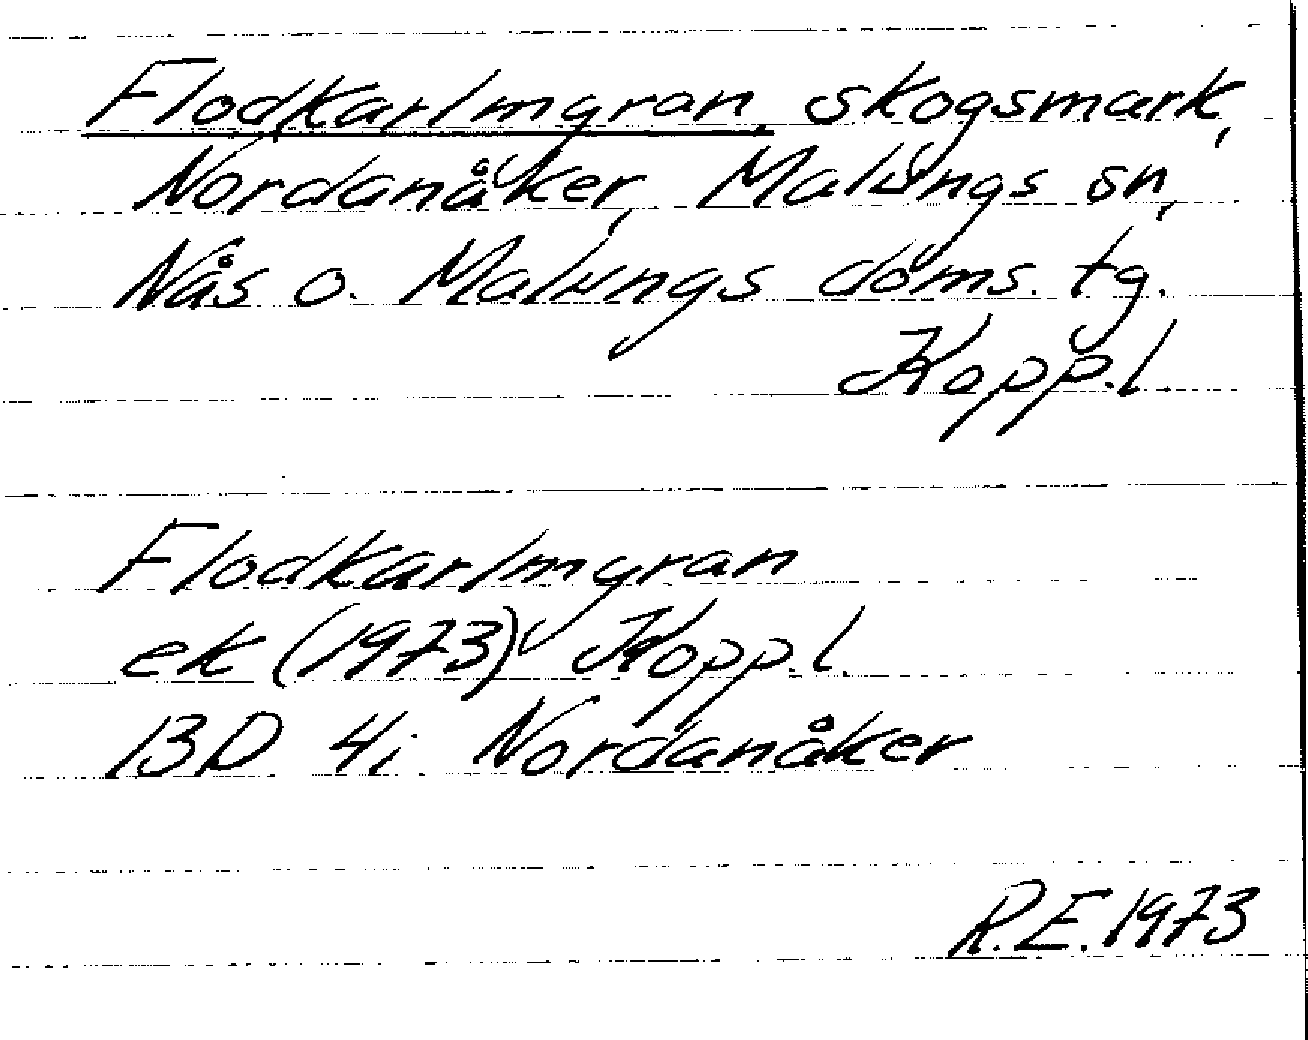 Flodkarlmyran, skogsmark,
Nordanåker, Malungs sn,
Nås o. Malungs doms. tg.
Kopp.l.
Flodkarlmyran
ek (1973) Kopp.l.
13D 4i Nordanåker
R.E. 1973